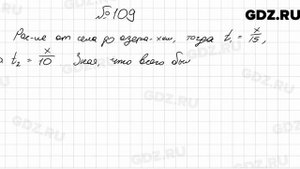 GDZ.RU
№ 109
Рас-ие от села до озера - x км, тогда t₁ = x/15,
а t₂ = x/10 Зная, что всего был